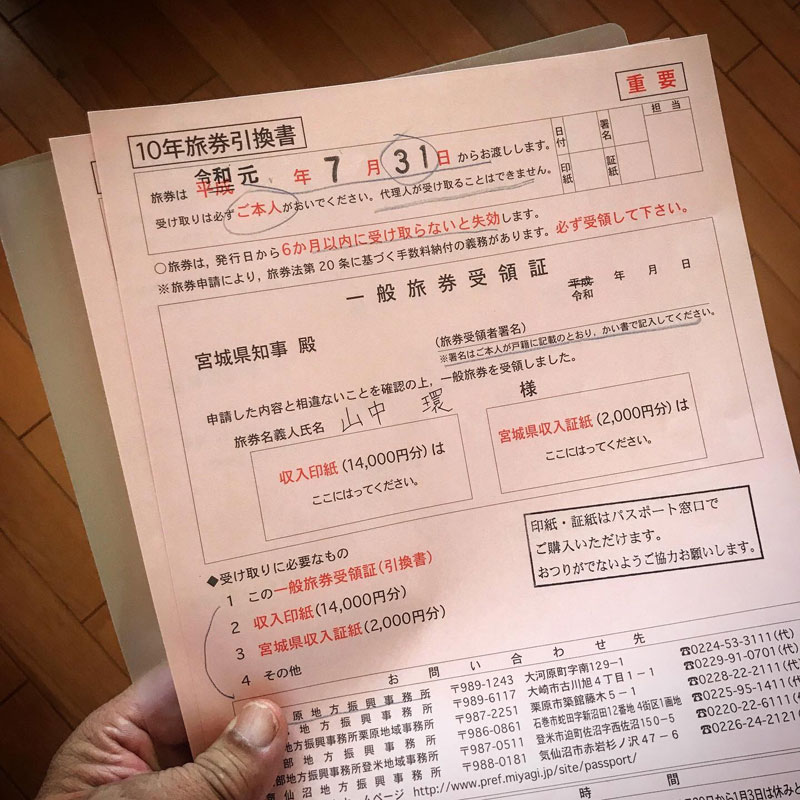 重要
10年旅券引換書
担当
日付 印紙
署名 証紙
旅券は 平成 令和元 年 7 月 31 日 からお渡しします。
受け取りは必ずご本人がおいでください。代理人が受け取ることはできません。
○旅券は，発行日から6か月以内に受け取らないと失効します。
※旅券申請により，旅券法第20条に基づく手数料納付の義務があります。必ず受領して下さい。
一般旅券受領証
平成 令和 年 月 日
宮城県知事 殿
(旅券受領者署名)
※署名はご本人が戸籍に記載のとおり，かい書で記入してください。
申請した内容と相違ないことを確認の上，一般旅券を受領しました。
旅券名義人氏名 山中 環 様
収入印紙(14,000円分)は
ここにはってください。
宮城県収入証紙(2,000円分)は
ここにはってください。
印紙・証紙はパスポート窓口で
ご購入いただけます。
おつりがでないようご協力お願いします。
◆受け取りに必要なもの
1 この一般旅券受領証(引換書)
2 収入印紙(14,000円分)
3 宮城県収入証紙(2,000円分)
4 その他
お問い合わせ先
原地方振興事務所 〒989-1243 大河原町字南129-1 ☎0224-53-3111(代)
地方振興事務所 〒989-6117 大崎市古川旭4丁目1-1 ☎0229-91-0701(代)
地方振興事務所栗原地域事務所 〒987-2251 栗原市築館藤木5-1 ☎0228-22-2111(代)
部地方振興事務所 〒986-0861 石巻市蛇田字新沼田12番地 4街区1画地 ☎0225-95-1411(代)
部地方振興事務所登米地域事務所 〒987-0511 登米市迫町佐沼字西佐沼150-5 ☎0220-22-6111(代)
気仙沼地方振興事務所 〒988-0181 気仙沼市赤岩杉ノ沢47-6 ☎0226-24-2121(
ームページ http://www.pref.miyagi.jp/site/passport/
時間
から1月3日は休みと